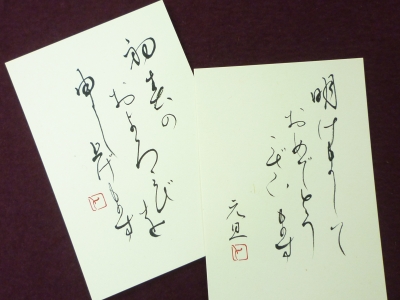 初春の
およろこびを
申し上げます
明けまして
おめでとう
ございます
元旦